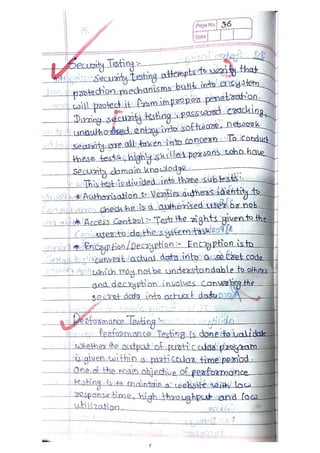 Page No. 36
Date
Security Testing :-
Security Testing attempts to verify that
protection mechanisms built into a system
will protect it from improper penetration.
During security testing, password cracking,
unauthorised entry into software, network
security are all taken into concern. To conduct
these tests, highly skilled persons who have
security domain knowledge.
This test is divided into three sub tests :-
* Authorisation :- Verifies authors identity to
check he is a authorised user or not.
* Access Control :- Tests the rights given to the
user to do the system task.
* Encryption/Decryption :- Encryption is to
convert actual data into a secret code
which may not be understandable to others
and decryption involves converting the
secret data into actual data.
Performance Testing :-
Performance Testing is done to validate
whether the output of particular program
is given within a particular time period.
One of the main objective of performance
testing is to maintain a website with low
response time, high throughput and low
utilization.